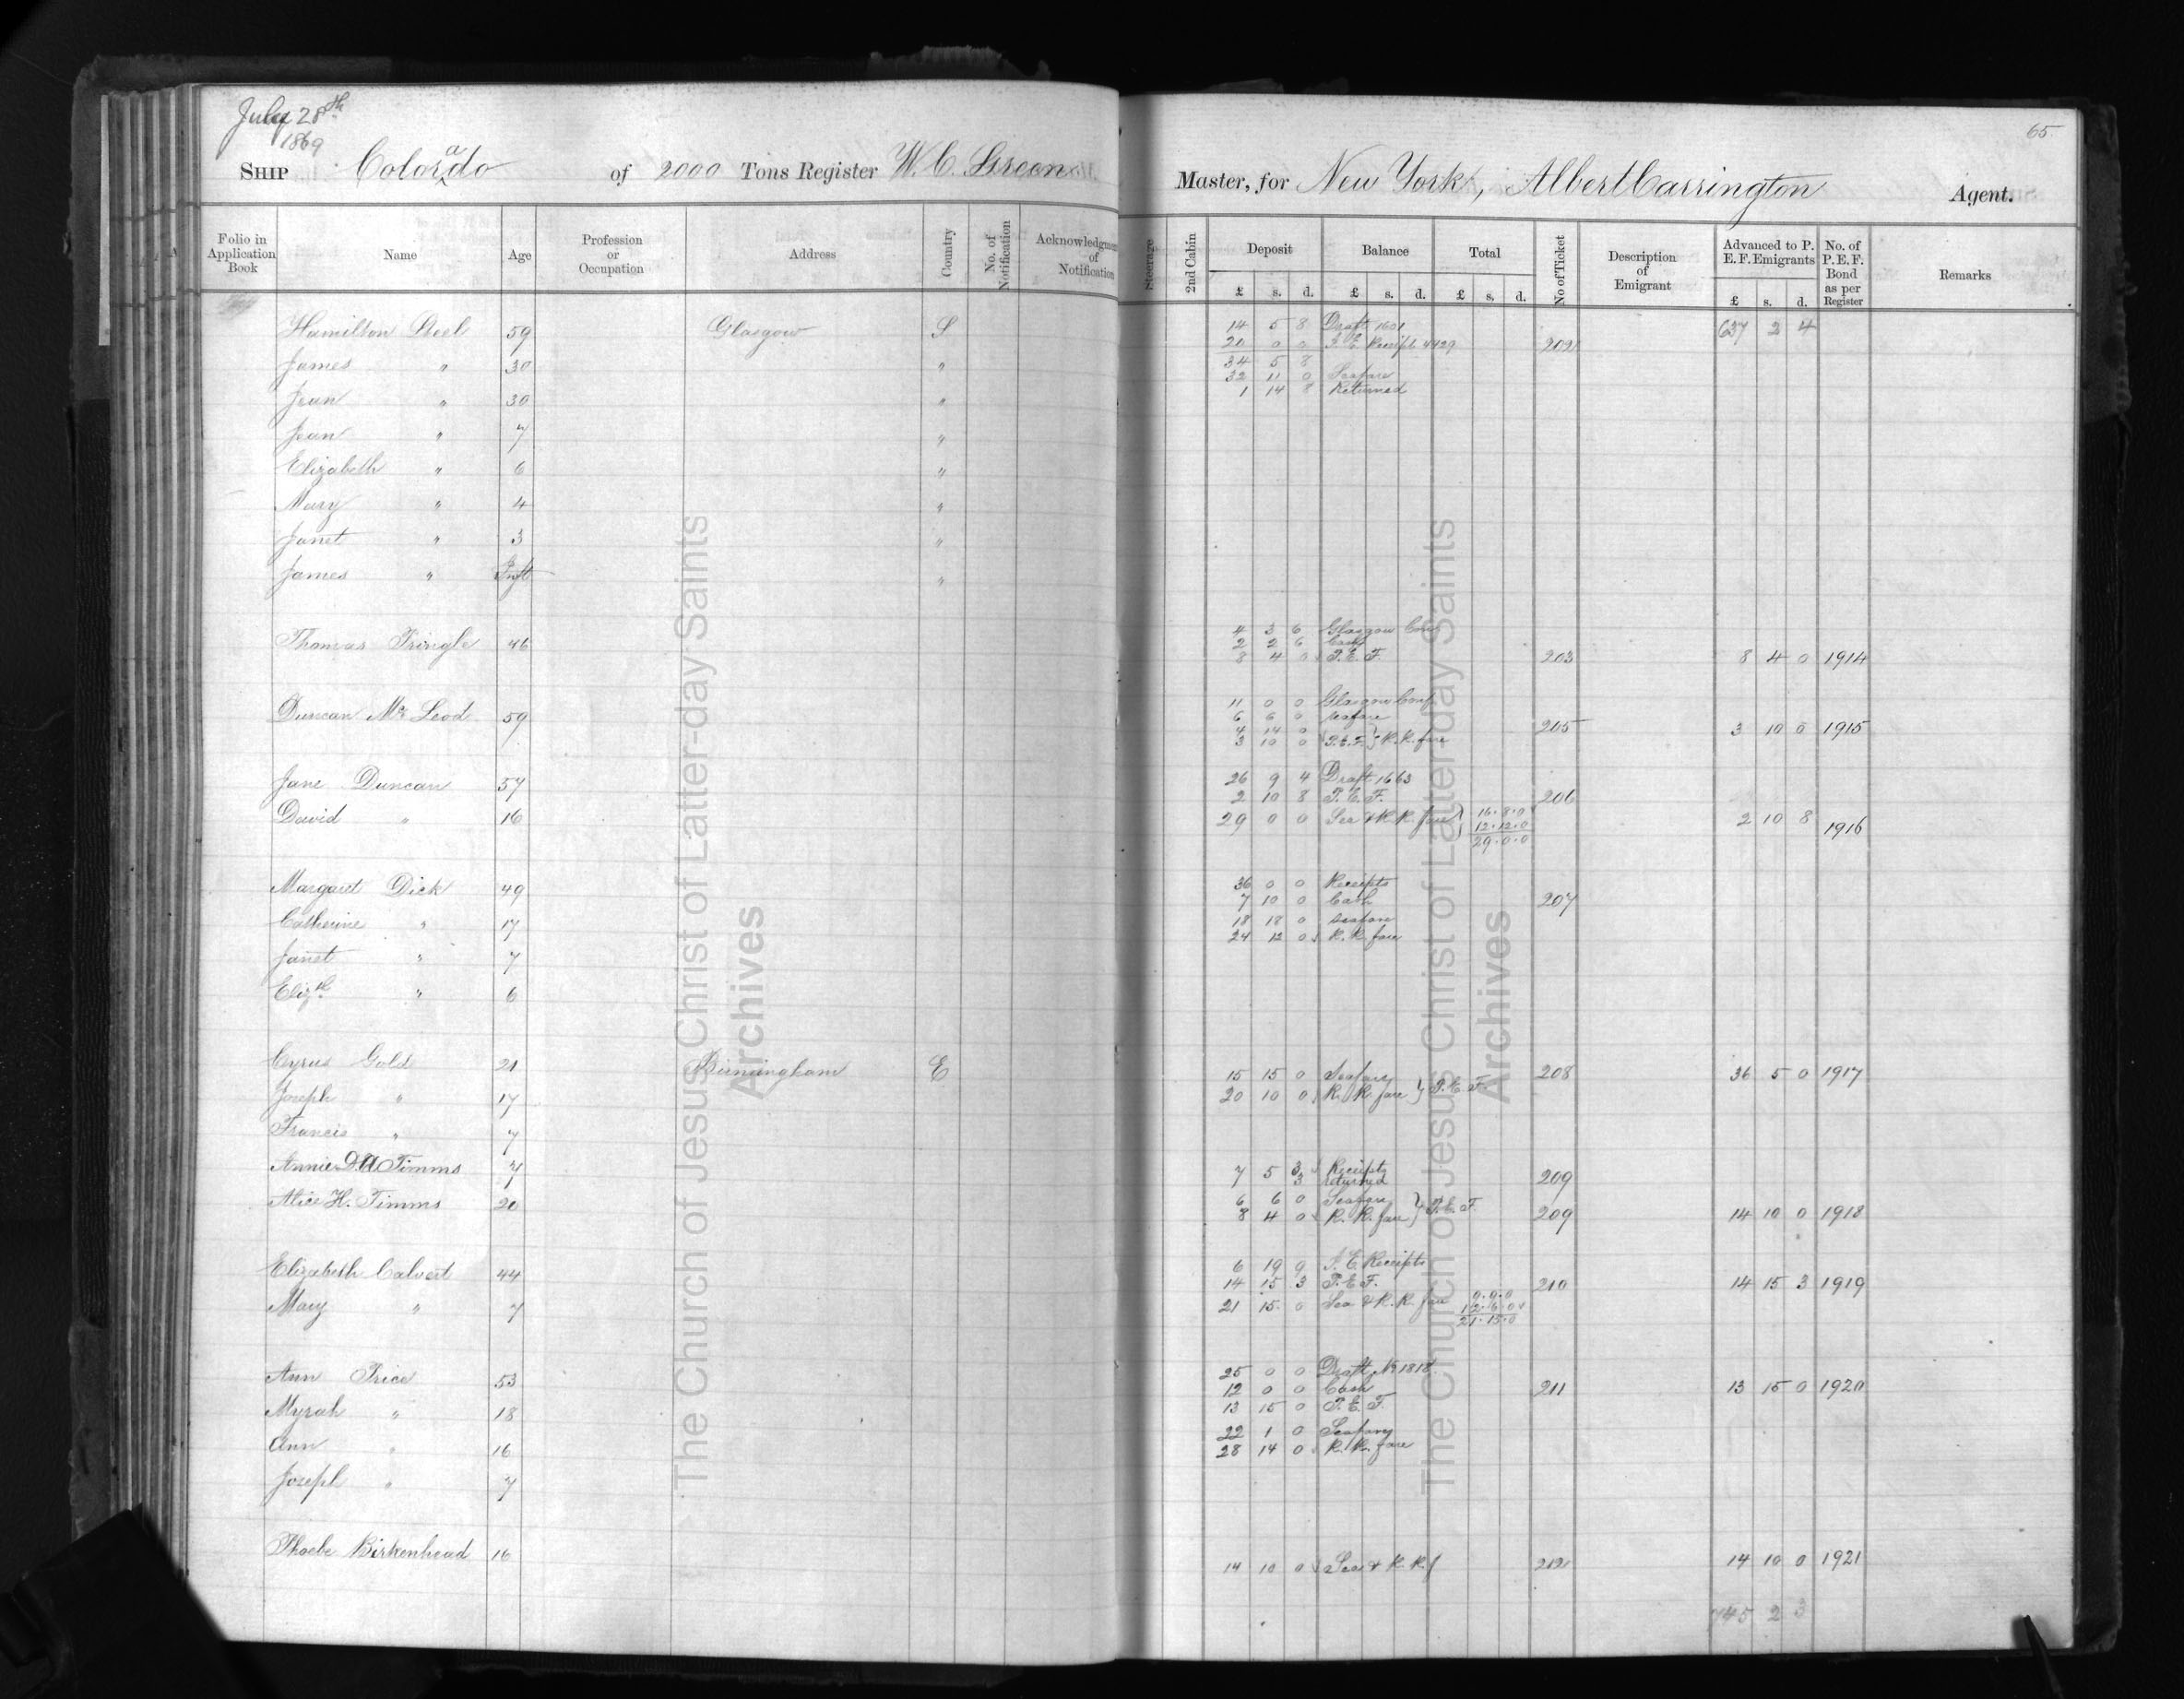 July 28th
1869
65
SHIP Colorado of 2000 Tons Register W. C. Green Master, for New York, Albert Carrington Agent.
Folio in Application Book Name Age Profession or Occupation Address Country No. of Notification Acknowledgment of Notification Steerage 2nd Cabin Deposit Balance Total No of Ticket Description of Emigrant Advanced to P. E. F. Emigrants No. of P. E. F. Bond as per Register Remarks
£ s. d. £ s. d. £ s. d. £ s. d.
Hamilton Steel 59 Glasgow S 14 5 8 Draft 1601 637 2 4
20 0 0 I. E. Receipt 4429 202
James " 30 " 34 5 8
32 11 0 Seafare
Jean " 30 " 1 14 8 Returned
Jean " 7 "
Elizabeth " 6 "
Mary " 4 "
Janet " 3 "
James " Inft "
Thomas Pringle 46 4 3 6 Glasgow Conf
2 2 6 Cash
8 4 0 P. E. F. 203 8 4 0 1914
Duncan Mc Leod 59 11 0 0 Glasgow Conf
6 6 0 seafare
4 14 0
3 10 0 P. E. F. } R. R. fare 205 3 10 0 1915
Jane Duncan 57 26 9 4 Draft 1663
2 10 8 P. E. F. 206
David " 16 29 0 0 Sea & R. R. fare } 16.8.0 2 10 8 1916
12.12.0
29.0.0
Margaret Dick 49 36 0 0 Receipts
7 10 0 Cash 207
Catherine " 17 18 18 0 seafare
24 12 0 R. R. fare
Janet " 7
Elizth " 6
Cyrus Gold 21 Birmingham E 15 15 0 Seafare 208 36 5 0 1917
Joseph " 17 20 10 0 R. R. fare } P. E. F.
Francis " 7
Annie D. A. Timms 7 7 5 3 Receipts
3 returned 209
Alice H. Timms 20 6 6 0 Seafare } P. E. F.
8 4 0 R. R. fare 209 14 10 0 1918
Elizabeth Calvert 44 6 19 9 I. E. Receipts
14 15 3 P. E. F. 210 14 15 3 1919
Mary " 7 21 15 0 Sea & R. R. fare 9.9.0
12.6.0
21.15.0
Ann Price 53 25 0 0 Draft No 1818
12 0 0 Cash 211 13 15 0 1920
Myrah " 18 13 15 0 P. E. F.
22 1 0 Seafare
Ann " 16 28 14 0 R. R. fare
Joseph " 7
Phoebe Birkenhead 16 14 10 0 Sea & R. R. f 212 14 10 0 1921
745 2 3
The Church of Jesus Christ of Latter-day Saints
Archives
The Church of Jesus Christ of Latter-day Saints
Archives